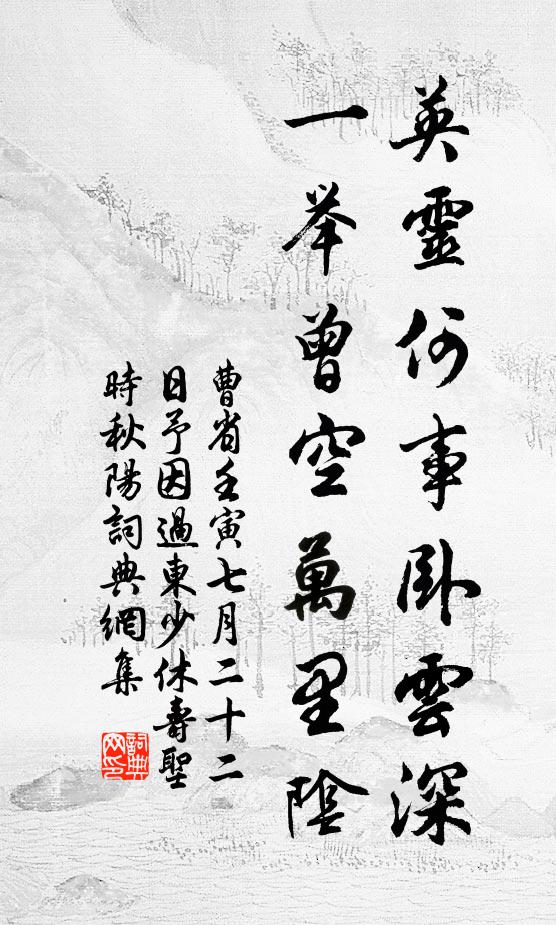 英靈何事臥雲深
一举曾空萬里陰
曹省壬寅七月二十二
日予因過東少休壽聖
時秋陽詞典網集
詞典网印